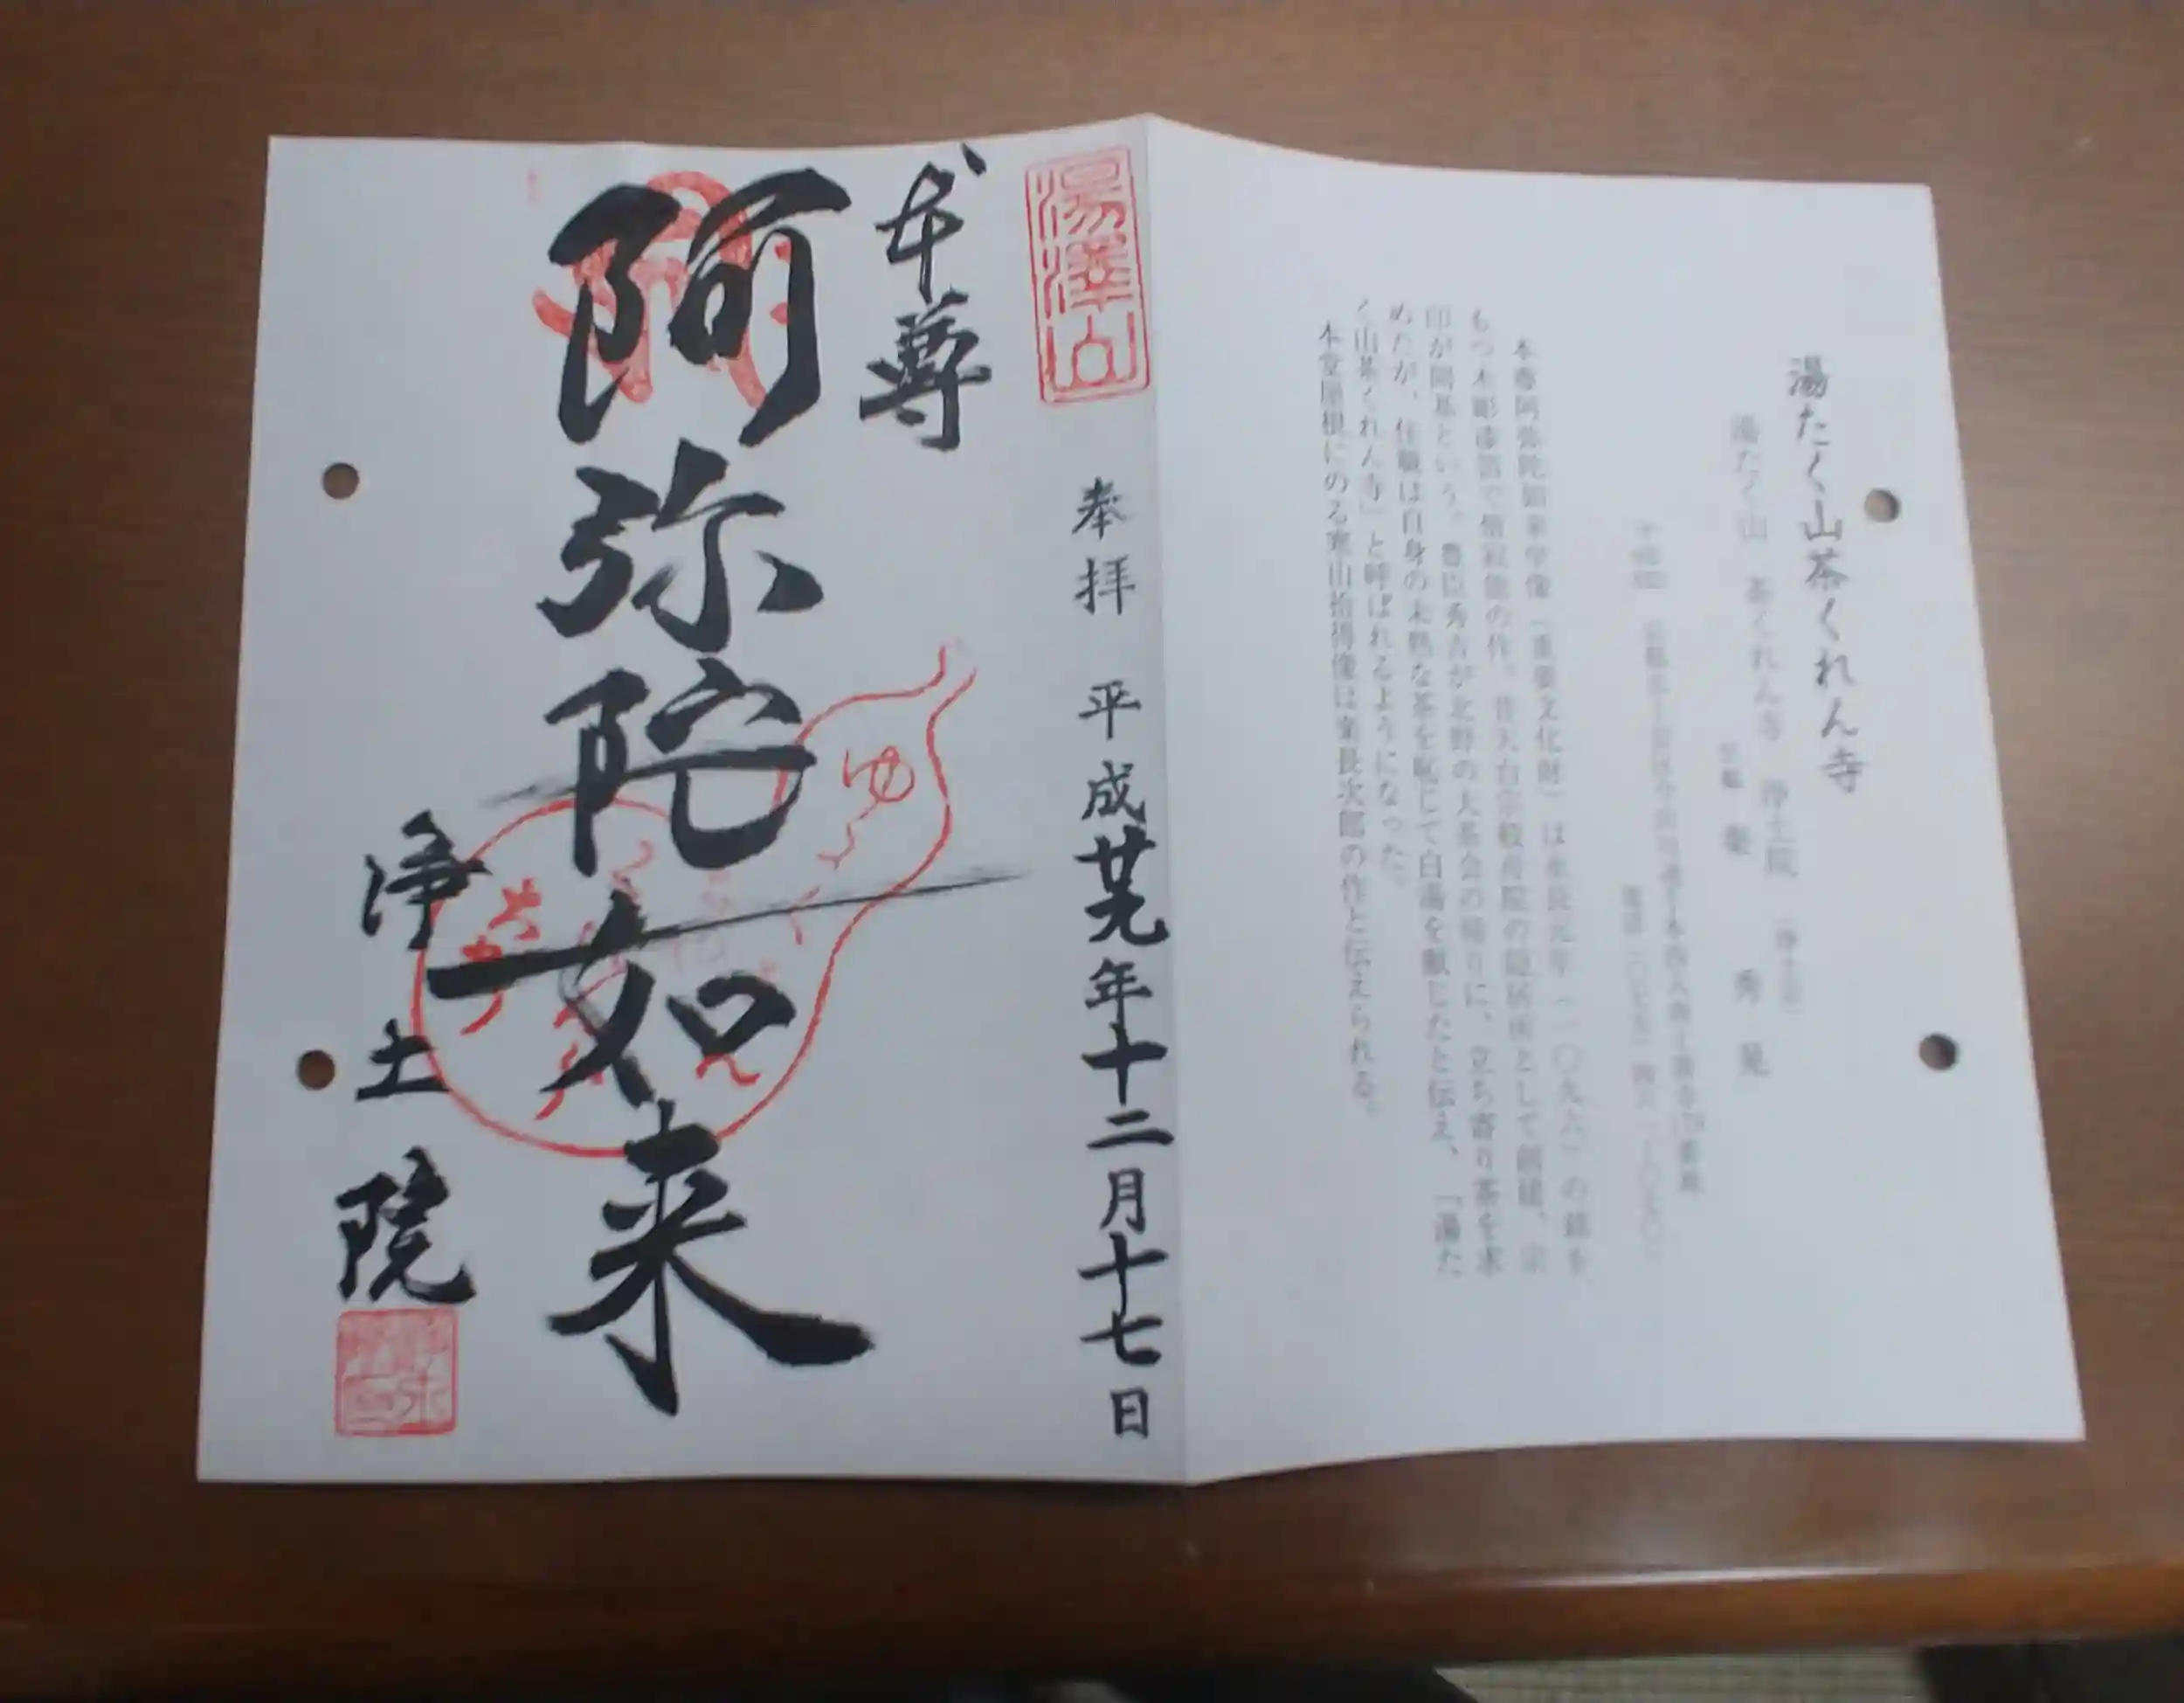 湯たく山茶くれん寺
湯たく山 茶くれん寺 浄土院 (浄土宗)
秀晃
本尊阿弥陀如来坐像(重要文化財)は永長元年(一〇九六)の銘を
もつ木彫漆箔で僧寂能の作。昔天台宗般舟院の隠居所として創建、宗
印が開基という。豊臣秀吉が北野の大茶会の帰りに、立ち寄り茶を求
めたが、住職は自身の未熟な茶を恥じて白湯を献じたと伝え、「湯た
く山茶くれん寺」と呼ばれるようになった。
本堂屋根にのる寒山拾得像は楽長次郎の作と伝えられる。
湯澤山
奉拝 平成廿九年十二月十七日
本尊
阿弥陀如来
浄土院
ゆ